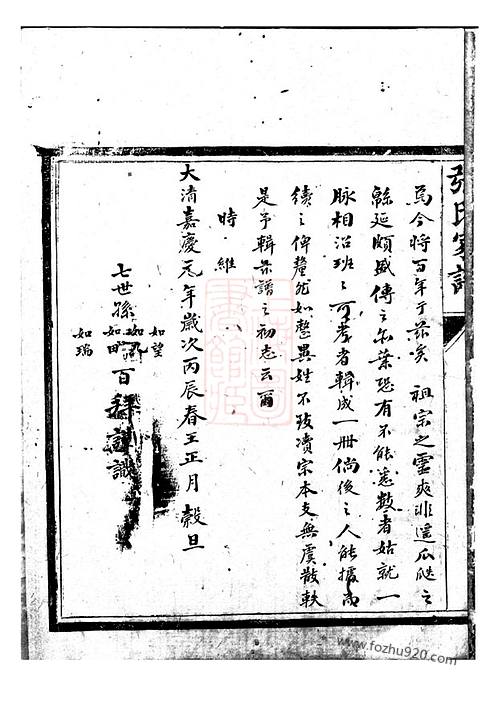 張氏家譜
焉今將百年于茲矣 祖宗之靈爽非遥瓜瓞之
緜延頗盛傳之奕葉恐有不能悉数者姑就一
脉相沿班〻可考者輯成一冊倘後之人能據而
續之俾釐然如整異姓不致凟宗本支無虞散軼
是予輯茲譜之初志云爾
時維
大清嘉慶元年歲次丙辰春王正月穀旦
七世孫
如望
如田
如瑞
百拜謹識
www.fozhu920.com